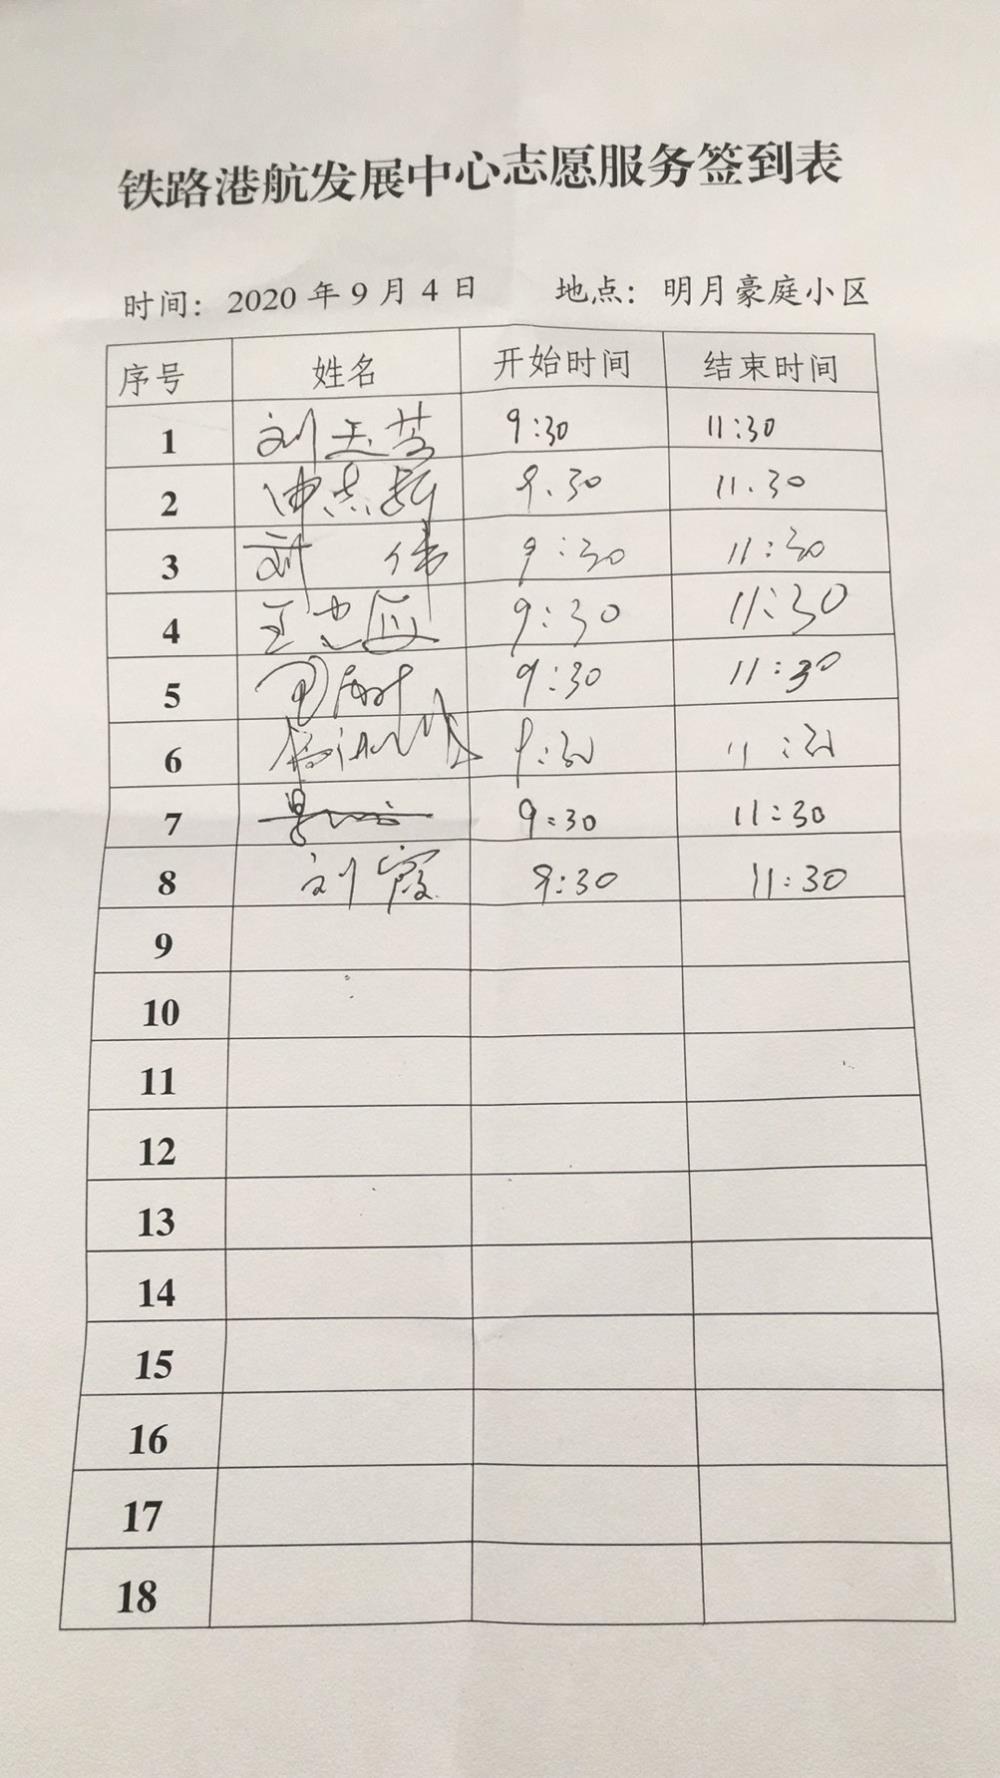 铁路港航发展中心志愿服务签到表
时间：2020 年 9 月 4 日 地点：明月豪庭小区
序号 姓名 开始时间 结束时间
1 刘玉芳 9:30 11:30
2 9.30 11.30
3 刘伟 9:30 11:30
4 王忠应 9:30 11:30
5 9:30 11:30
6 9:30 11:30
7 9:30 11:30
8 刘霞 9:30 11:30
9
10
11
12
13
14
15
16
17
18